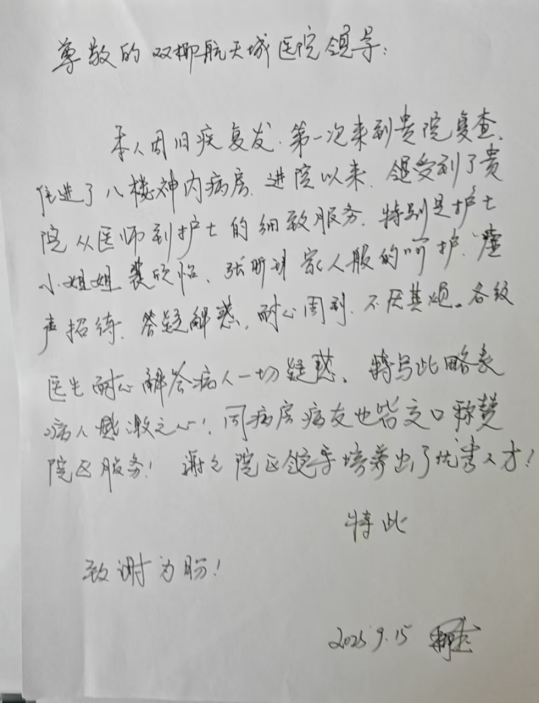 尊敬的双柳航天城医院领导:
本人因旧疾复发,第一次来到贵院复查,
住进了八楼神内病房,进院以来,领受到了贵
院从医师到护士的细致服务,特别是护士
小姐姐 家人般的呵护,
声招待,答疑解惑,耐心周到,不厌其烦。各级
医生耐心解答病人一切疑惑,特写此略表
病人感激之心!同病房病友也皆交口称赞
院区服务!谢之院区领导培养出了优秀人才!
特此
致谢为盼!
2025.9.15